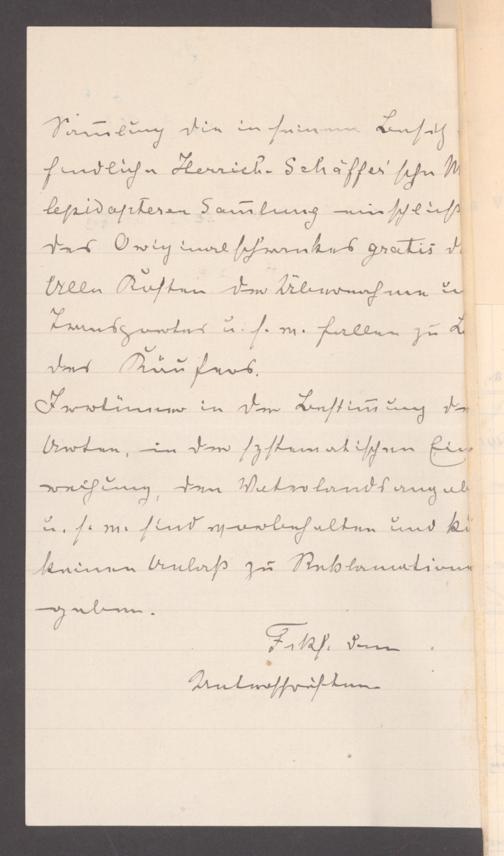 Sam̄lung die in seinem Besitz
findlichen Herrich-Schäffer'schen M
lepidopteren Sam̄lung einschließ
des Originalschrankes gratis d
Alle Kosten der Übernahme u
Transportes u. s. w. fallen zu L
des Käufers.
Irrtümer in der Bestim̄ung de
Arten, in der systematischen Ein
reihung, den Vaterlandsangab
u. s. w. sind vorbehalten und kö
keinen Anlaß zu Reklamatione
geben.
Frkf. den
Unterschriften